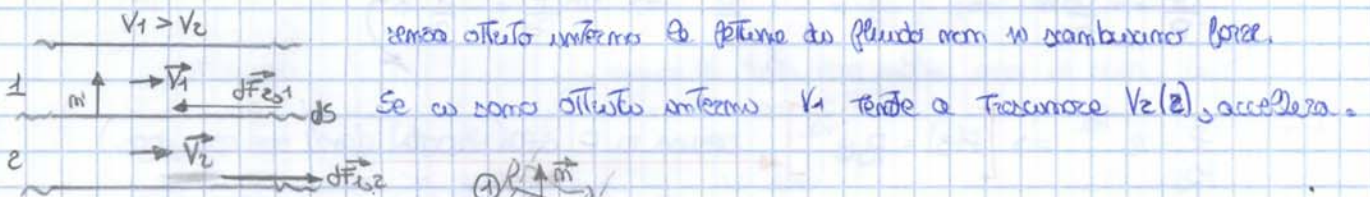 V1 > V2
senza attrito interno le fettine di fluido non si scambiano forze.
1 n V1 dF2→1 dS Se ci sono attrito interno V1 tende a trascinare V2 (2), accelera.
2 V2 dF1→2
1 n